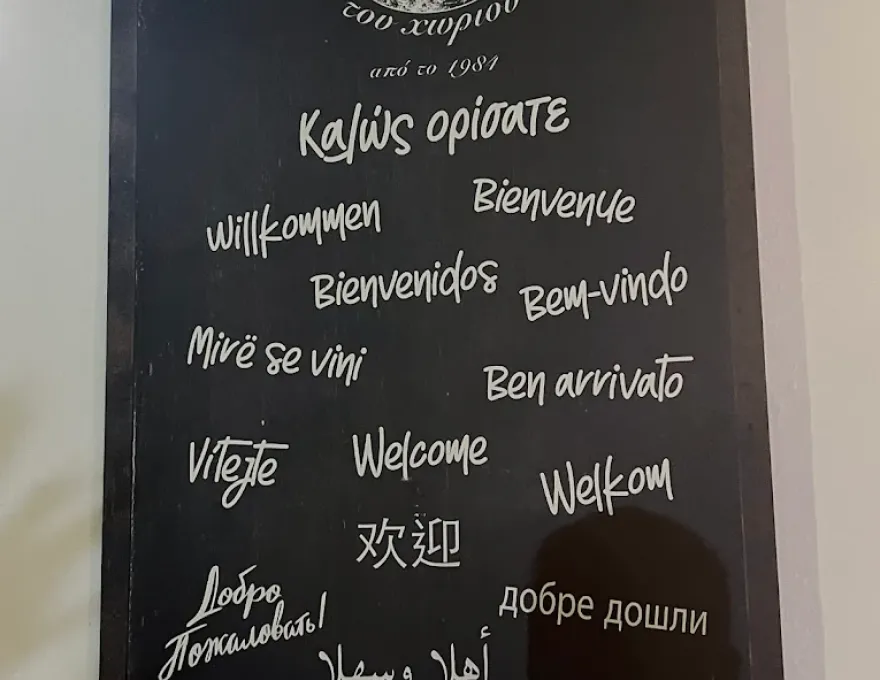 του χωριού
από το 1984
Καλώς ορίσατε
Willkommen
Bienvenue
Bienvenidos
Bem-vindo
Mirë se vini
Ben arrivato
Vítejte
Welcome
Welkom
欢迎
Добро
Пожаловать!
добре дошли
أهلا وسهلا